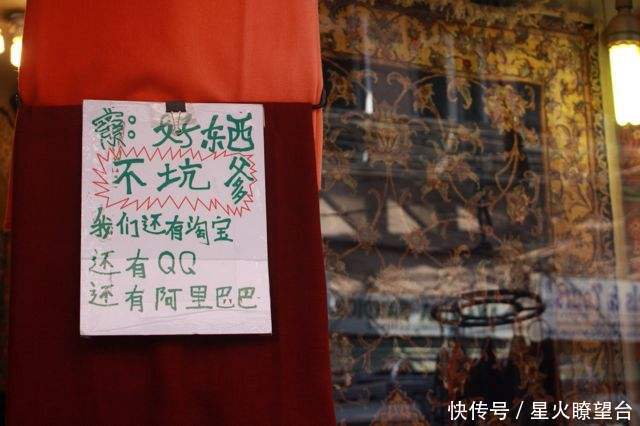 好东西
不坑爹
我们还有淘宝
还有QQ
还有阿里巴巴
快传号 / 星火瞭望台